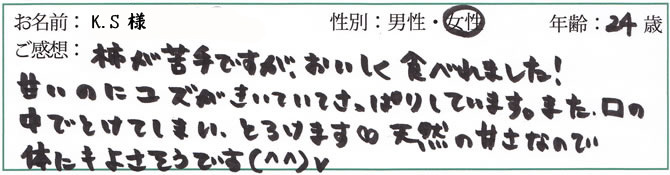 お名前：K.S 様 性別：男性・女性 年齢：24 歳
ご感想：柿が苦手ですが、おいしく食べれました！
甘いのにユズがきいていてさっぱりしています。また、口の
中でとけてしまい、とろけます♡ 天然の甘さなので
体にもよさそうです(^^)v